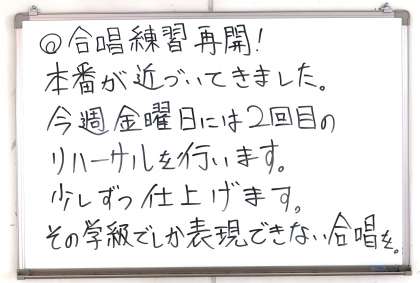 ◎合唱練習再開!
本番が近づいてきました。
今週金曜日には2回目の
リハーサルを行います。
少しずつ仕上げます。
その学級でしか表現できない合唱を。